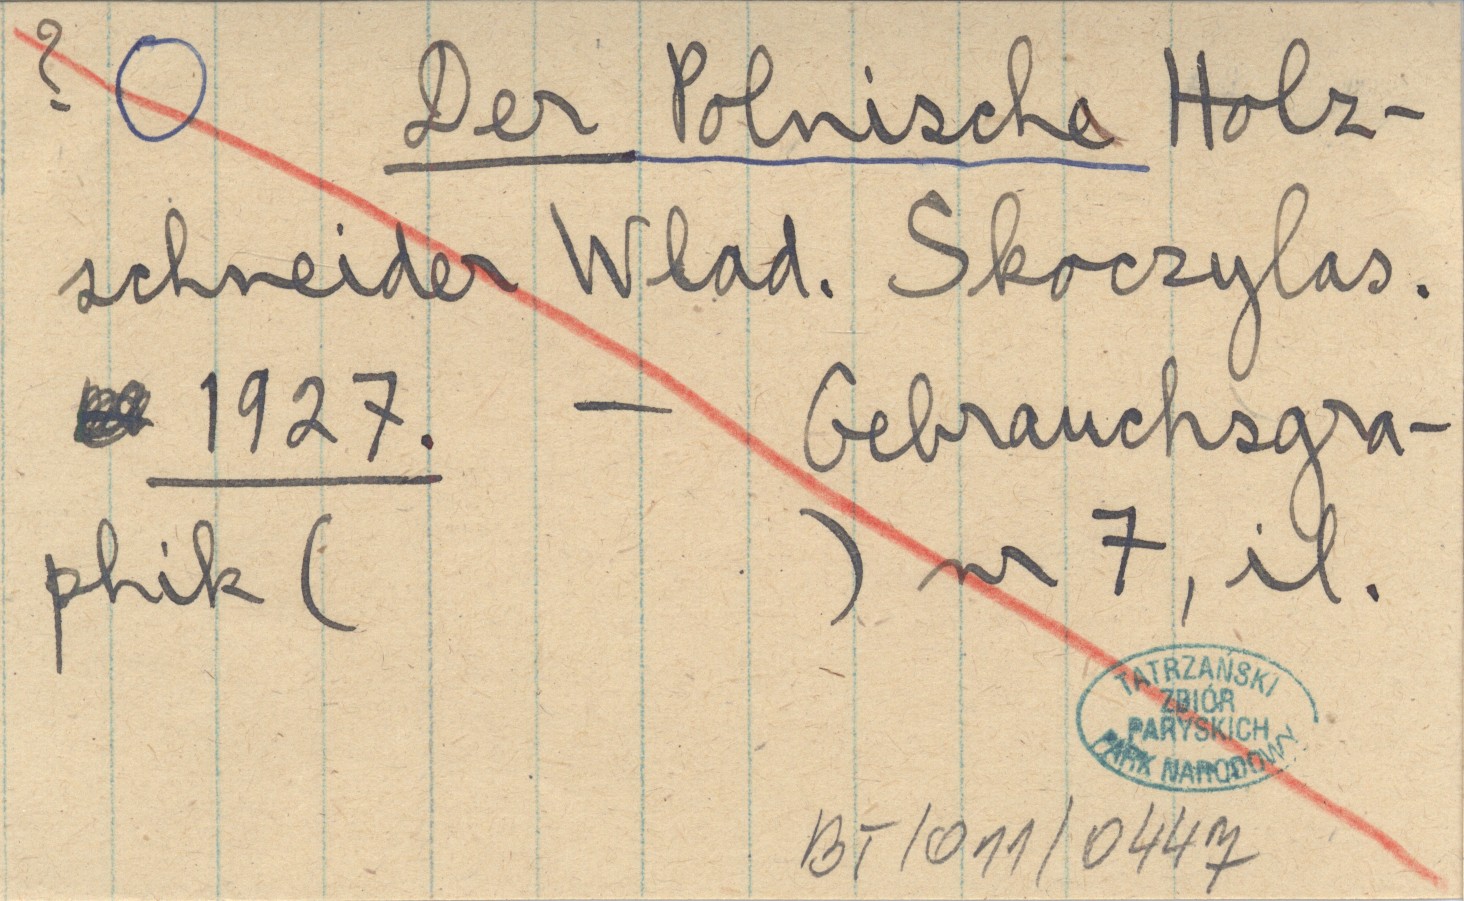 ? Der Polnische Holz-
schneider Wład. Skoczylas.
1927. — Gebrauchsgra-
phik ( ) nr 7, il.
TATRZAŃSKI
ZBIÓR
PARYSKICH
PARK NARODOWY
BT/011/0447